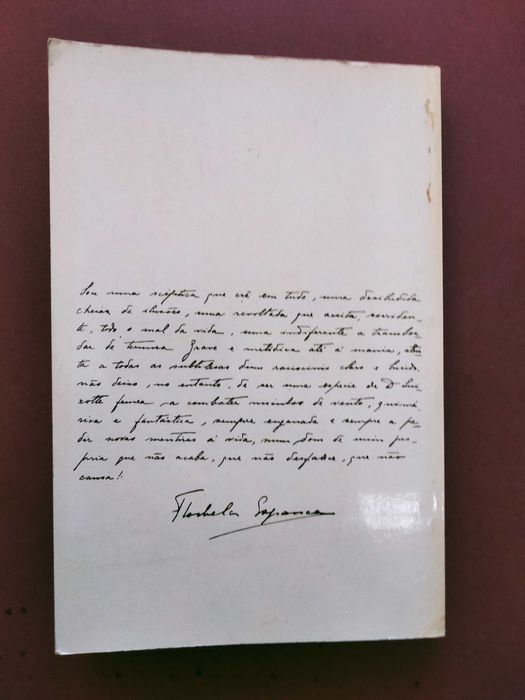 Sou uma céptica que crê em tudo, uma desiludida
cheia de ilusões, uma revoltada que aceita, sorriden-
te, todo o mal da vida, uma indiferente a transbor-
dar de ternura. Grave e metódica até à mania, aten-
ta a todas as subtilezas dum raciocínio claro e lúcido,
não deixo, no entanto, de ser uma espécie de D. Qui-
xotte fêmea a combater moinhos de vento, quimé-
rica e fantástica, sempre enganada e sempre a pe-
dir novas mentiras à vida, num dom de mim pró-
pria que não acaba, que não desfalece, que não
cansa!
Florbela Espanca